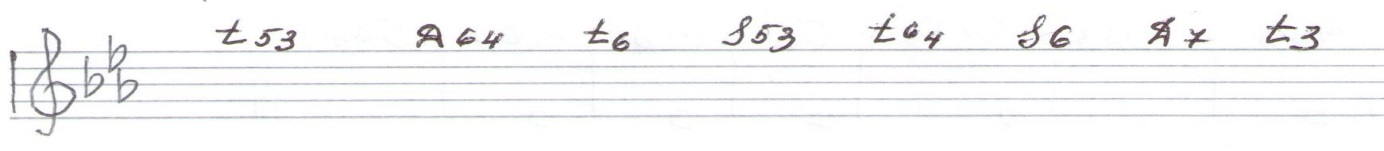 t53 D64 t6 S53 t64 S6 D7 t3